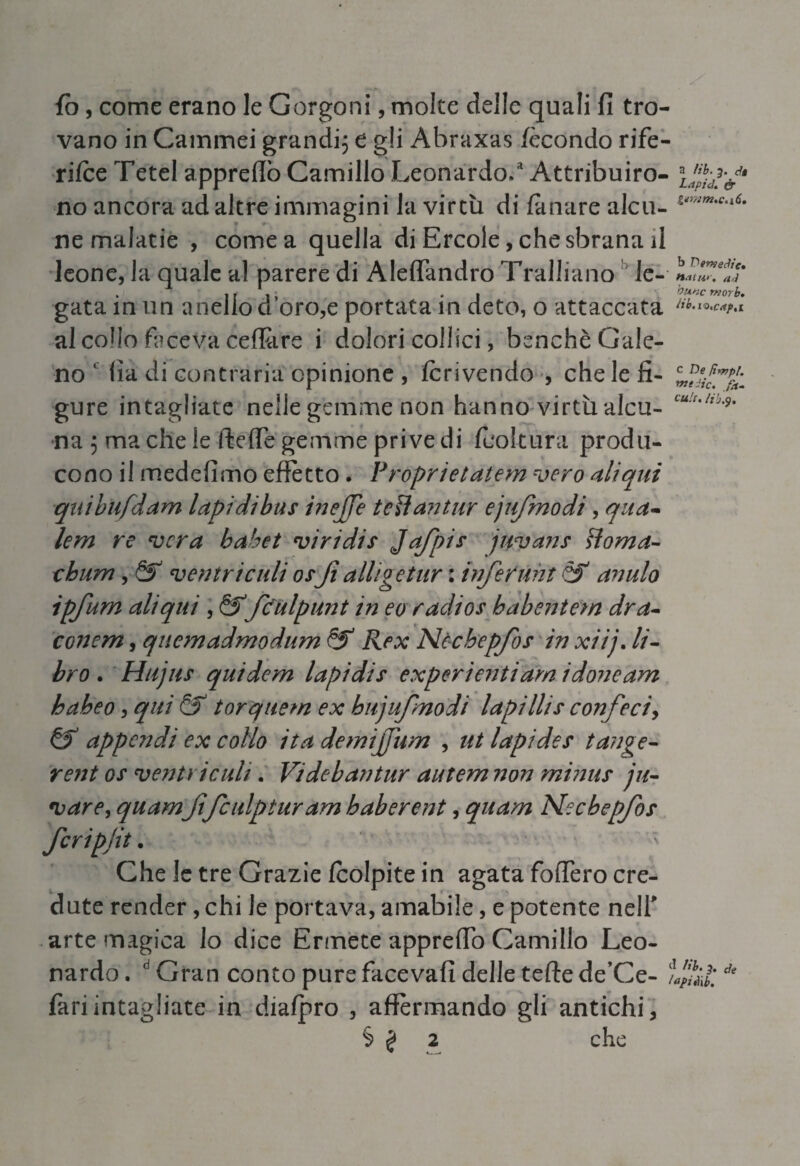 ſo, come erano le Gorgoni, molte delle quali ſi tro-
vano in Cammei grandi; e gli Abraxas ſecondo rife-
riſce Tetel appreſſo Camillo Leonardo.ᵃ Attribuiro-
no ancora ad altre immagini la virtù di ſanare alcu-
ne malatie , come a quella di Ercole, che sbrana il
leone, la quale al parere di Aleſſandro Tralliano ᵇ le-
gata in un anello d'oro, e portata in deto, o attaccata
al collo faceva ceſſare i dolori collici, benchè Gale-
no ᶜ ſia di contraria opinione , ſcrivendo , che le fi-
gure intagliate nelle gemme non hanno virtù alcu-
na ; ma che le ſteſſe gemme prive di ſcoltura produ-
cono il medeſimo effetto . Proprietatem vero aliqui
quibuſdam lapidibus ineſſe teſtantur ejuſmodi, qua-
lem re vera habet viridis Jaſpis juvans ſtoma-
chum, & ventriculi os ſi alligetur: inſerunt & anulo
ipſum aliqui, & ſculpunt in eo radios habentem dra-
conem, quemadmodum & Rex Nechepſos in xiij. li-
bro. Hujus quidem lapidis experientiam idoneam
habeo, qui & torquem ex hujuſmodi lapillis confeci,
& appendi ex collo ita demiſſum , ut lapides tange-
rent os ventriculi. Videbantur autem non minus ju-
vare, quam ſi ſculpturam haberent, quam Nechepſos
ſcripſit.
Che le tre Grazie ſcolpite in agata foſſero cre-
dute render, chi le portava, amabile, e potente nell'
arte magica lo dice Ermete appreſſo Camillo Leo-
nardo. ᵈ Gran conto pure facevaſi delle teſte de'Ce-
ſari intagliate in diaſpro , affermando gli antichi,
2 che
a lib. 3. de
Lapid. &
gemm.c.16.
b Remedic.
natur. ad
hunc morb.
lib.10.cap.1
c De ſimpl.
medic. fa-
cult. lib.9.
d lib. 3. de
lapidib.